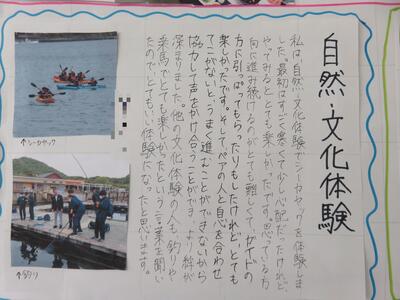 自然・文化体験
私は、自然・文化体験でシーカヤックを体験しま
した。最初はすごく寒くて少し心配だったけれど、
やってみるととても楽しかったです。思っている方
向に進み続けるのがとても難しくて、ガイドの
方に引っぱってもらったりもしたけれど、とても
楽しかったです。そして、ペアの人と息を合わせ
てこがないとうまく進むことができないから
協力して声をかけ合うことができ、より絆が
深まりました。他の文化体験の人も、釣りや
乗馬でとても楽しかったという言葉を聞い
たのでとてもいい体験になったと思います。
↑シーカヤック
↑釣り